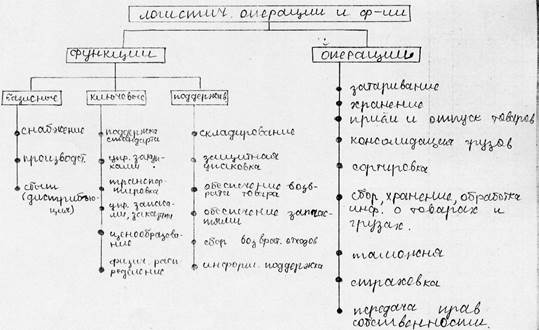 логистич. операции и ф-ии
функции
операции
базисные
ключевые
поддержив.
снабжение
производст.
сбыт
(дистрибью-
ция)
поддержка
стандарта
упр. закуп-
ками
транспор-
тировка
упр. запаса-
ми, заказами
ценообразо-
вание
физич. расп-
ределение
складирование
защитная
упаковка
обеспечение возв-
рата товара
обеспечение запчас-
тями
сбор возврат. отходов
информ. поддержка
затаривание
хранение
приём и отпуск товаров
консолидация грузов
сортировка
сбор, хранение, обработка
инф. о товарах и
грузах.
таможня
страховка
передача прав
собственности.